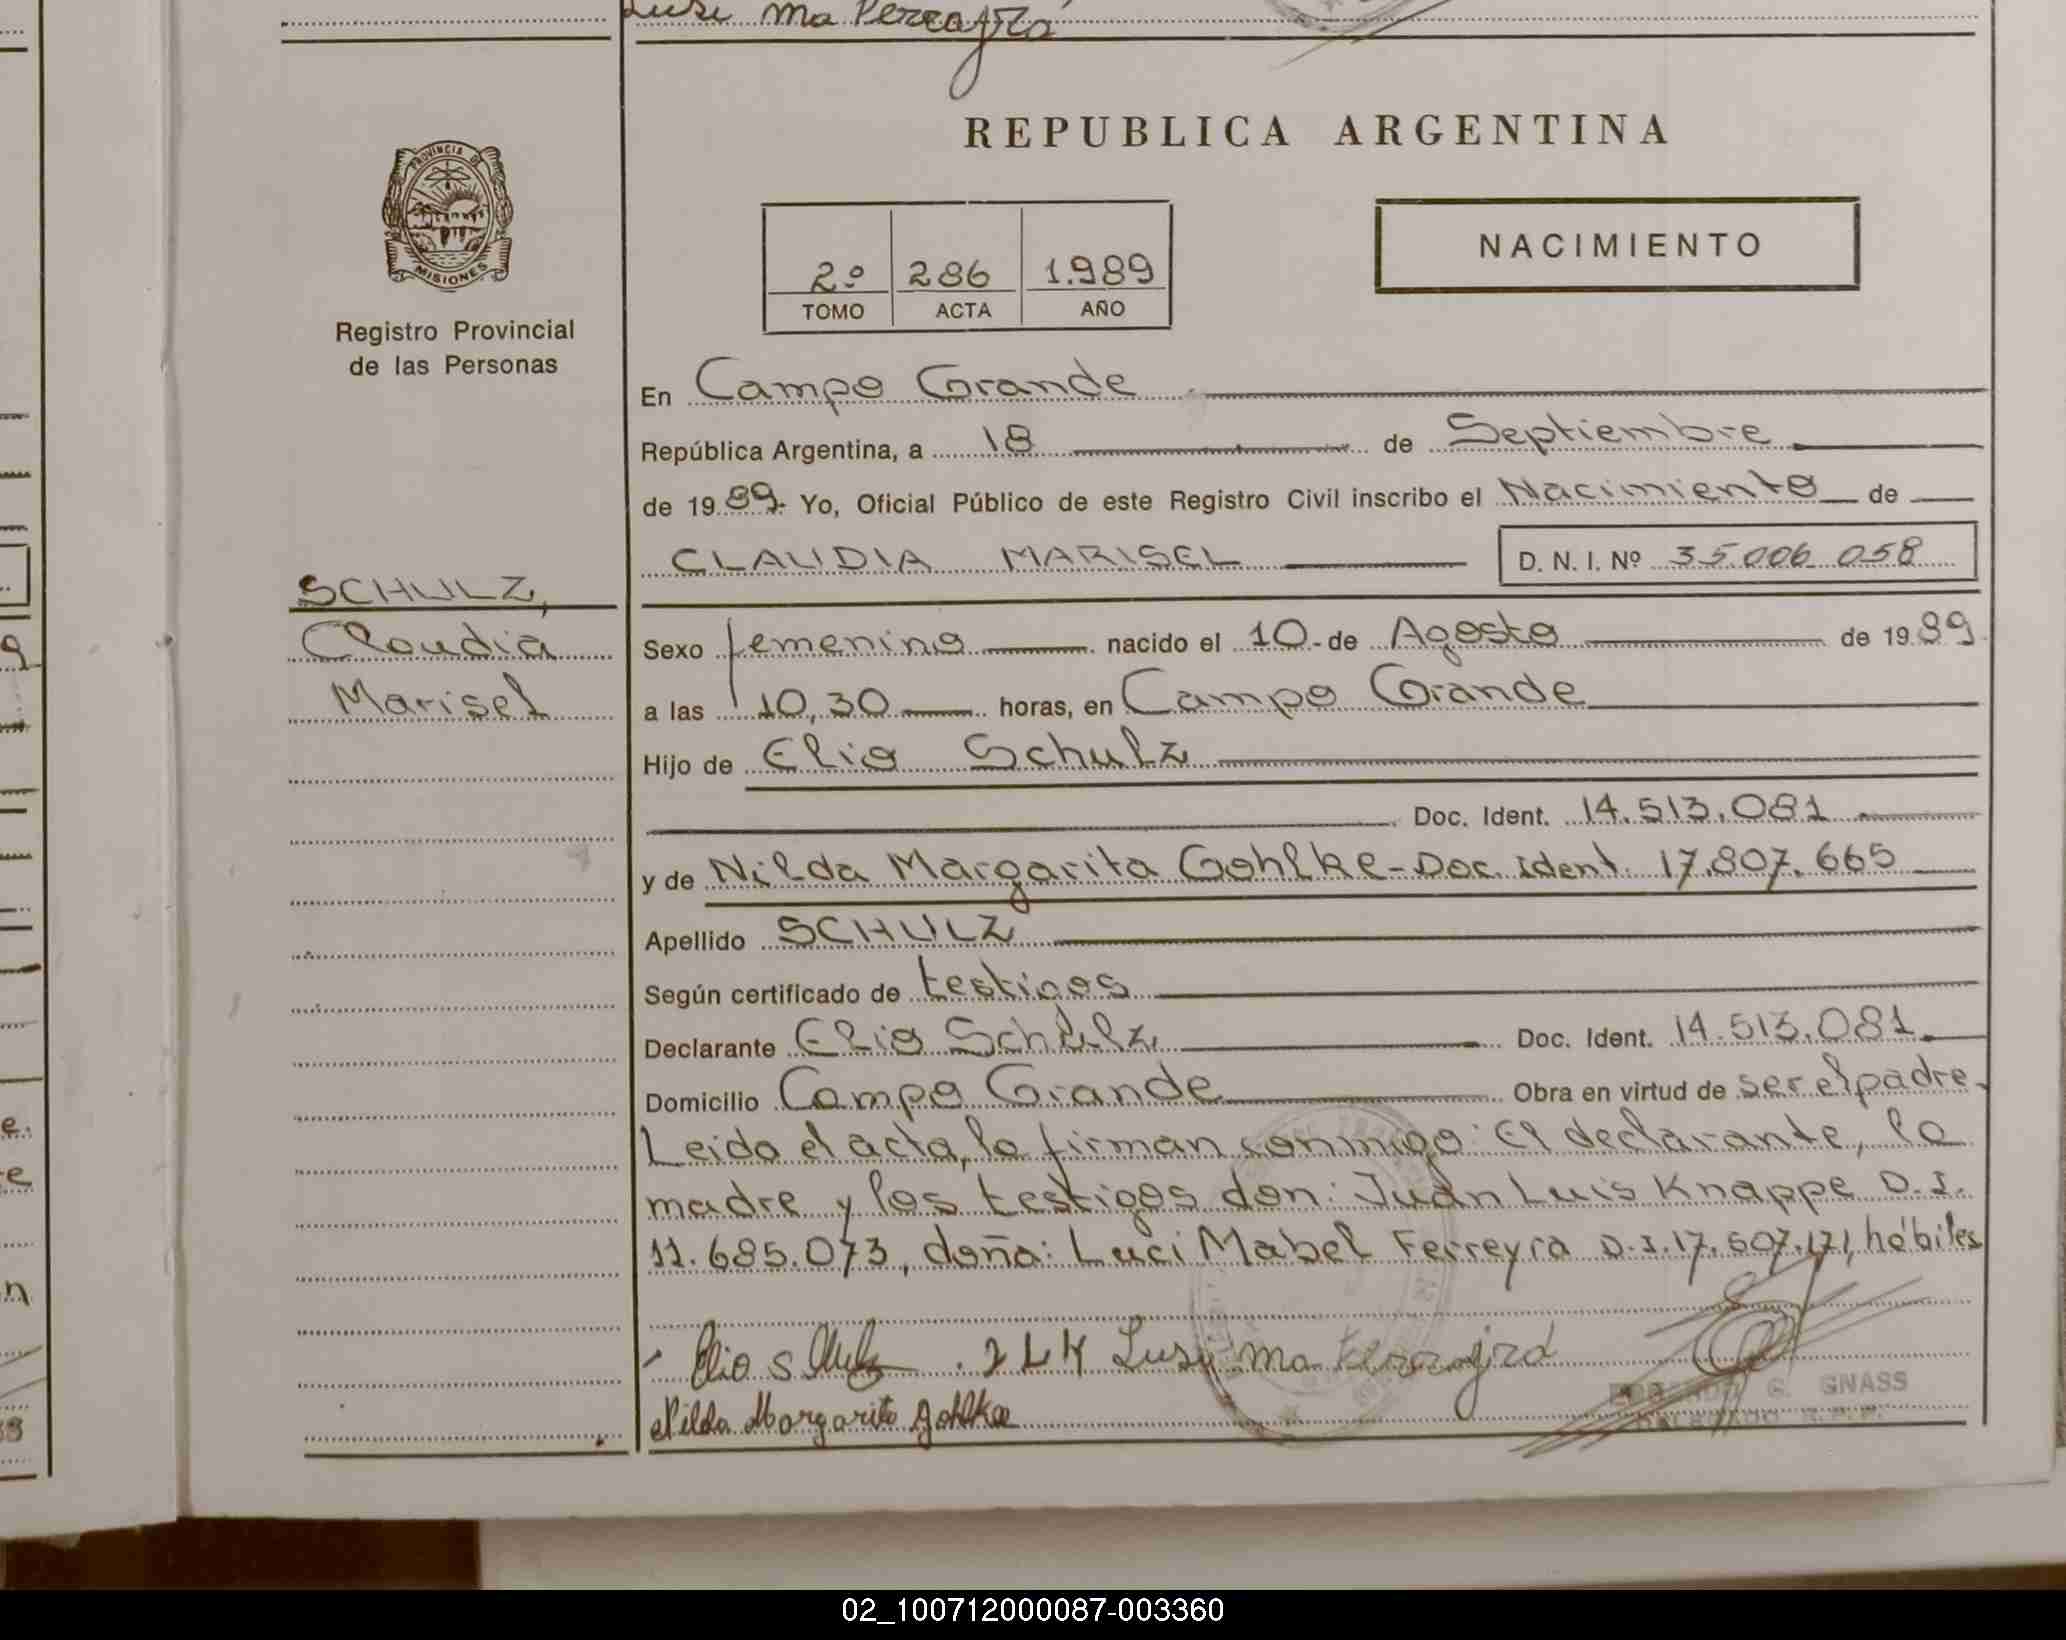 Lusi ma Ferrajra
REPUBLICA ARGENTINA
PROVINCIA DE
MISIONES
Registro Provincial
de las Personas
2º 286 1.989
TOMO ACTA AÑO
NACIMIENTO
En Campo Grande
República Argentina, a 18 de Septiembre
de 1989- Yo, Oficial Público de este Registro Civil inscribo el Nacimiento de
CLAUDIA MARISEL D. N. I. Nº 35.006.058
SCHULZ,
Claudia
Marisel
Sexo femenino nacido el 10-de Agosto de 1989
a las 10,30 horas, en Campo Grande
Hijo de Elio Schulz
Doc. Ident. 14.513.081
y de Nilda Margarita Gohlke-Doc. Ident. 17.807.665
Apellido SCHULZ
Según certificado de testigos
Declarante Elio Schulz Doc. Ident. 14.513.081.
Domicilio Campo Grande Obra en virtud de ser el padre.
Leida el acta, la firman conmigo: El declarante, la
madre y los testigos don: Juan Luis Knappe D.I.
11.685.073, doña: Luci Mabel Ferreyra D.I. 17.507.171, hábiles
Elio Schulz . J L K Lusi ma Ferrajra
Nilda Margarita Gohlke
G. GNASS
02_100712000087-003360